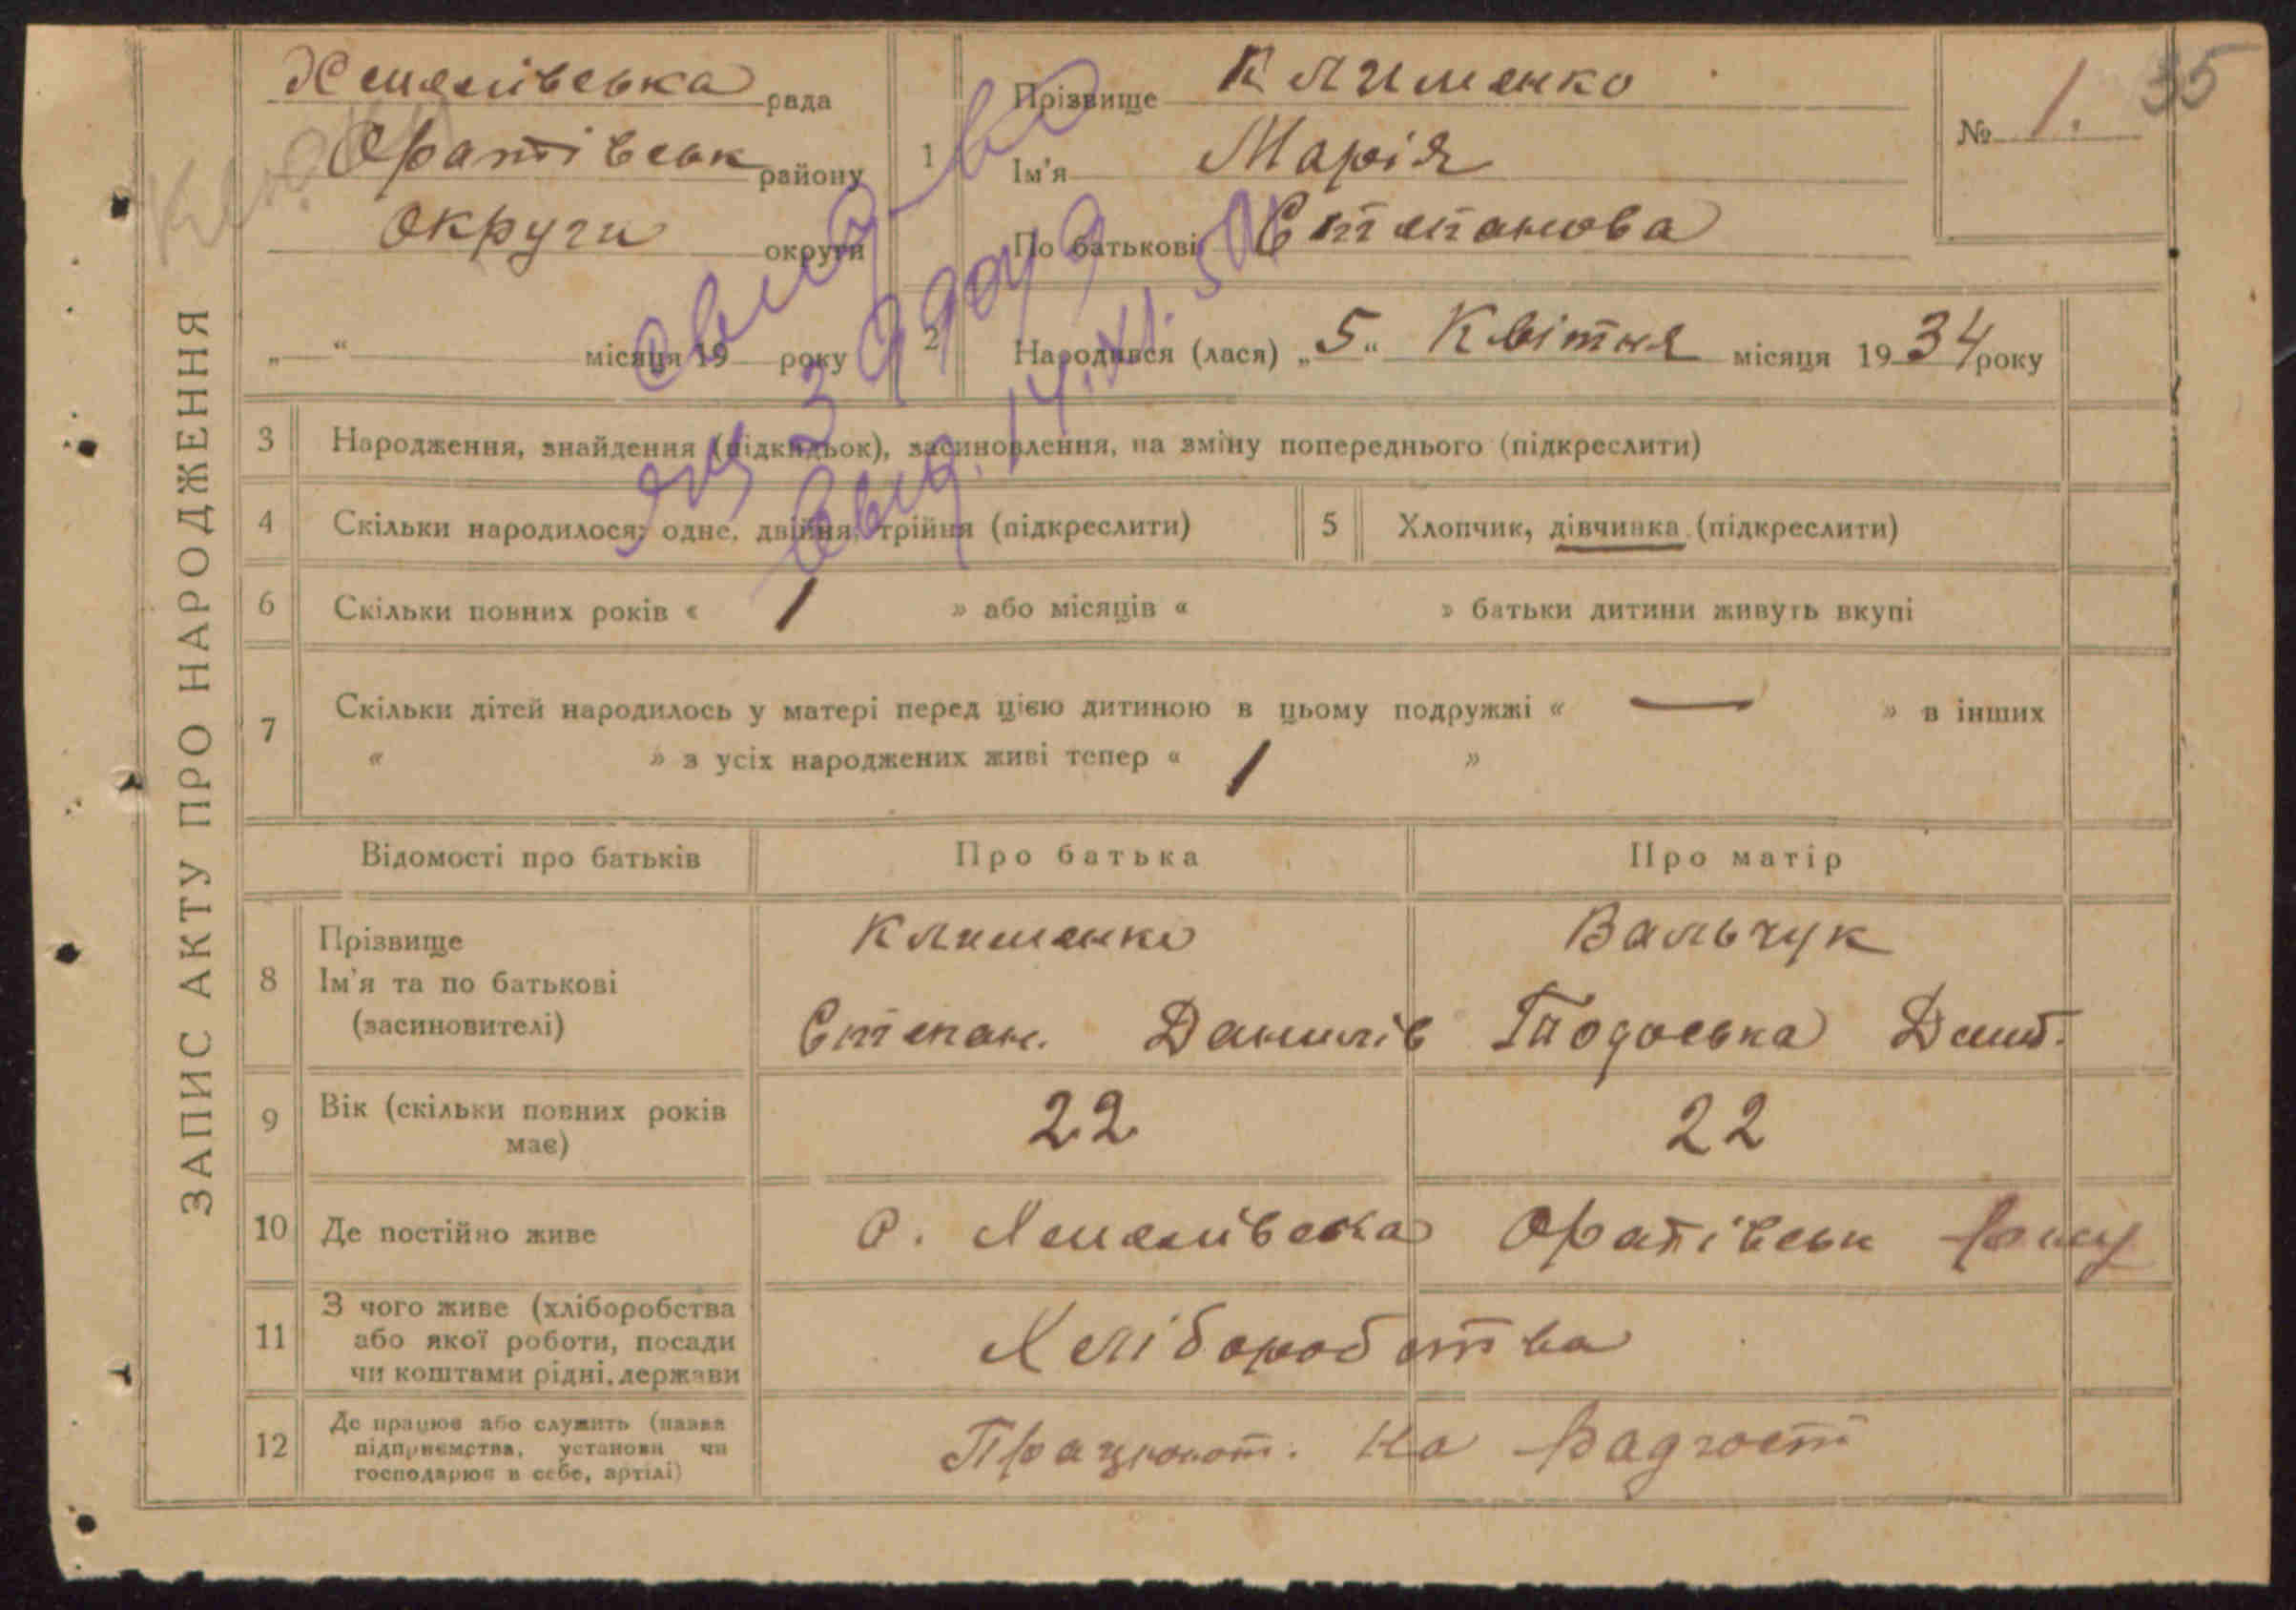 ЗАПИС АКТУ ПРО НАРОДЖЕННЯ
рада
Оратівськ району
Округи округи
„ “ місяця 19 року
1
Прізвище Клименко
Ім'я Марія
По батькові Степанова
№ 1.
35
2
Народився (лася) „5“ Квітня місяця 1934 року
3 Народження, знайдення (підкидьок), засиновлення, на зміну попереднього (підкреслити)
4 Скільки народилося: одне, двійня, трійня (підкреслити)
5 Хлопчик, дівчинка (підкреслити)
6 Скільки повних років « 1 » або місяців « » батьки дитини живуть вкупі
7 Скільки дітей народилось у матері перед цією дитиною в цьому подружжі « — » в інших
« » з усіх народжених живі тепер « 1 »
Відомості про батьків
Про батька
Про матір
8 Прізвище
Ім'я та по батькові
(засиновителі)
Клименко
Степан. Данилів
Вальчук
Тодоська
9 Вік (скільки повних років
має)
22
22
10 Де постійно живе
с. Оратівськ р-ну
11 З чого живе (хліборобства
або якої роботи, посади
чи коштами рідні, держави
Хліборобства
12 Де працює або служить (назва
підприємства, установи чи
господарює в себе, артілі)
Працюют. на радгоспі